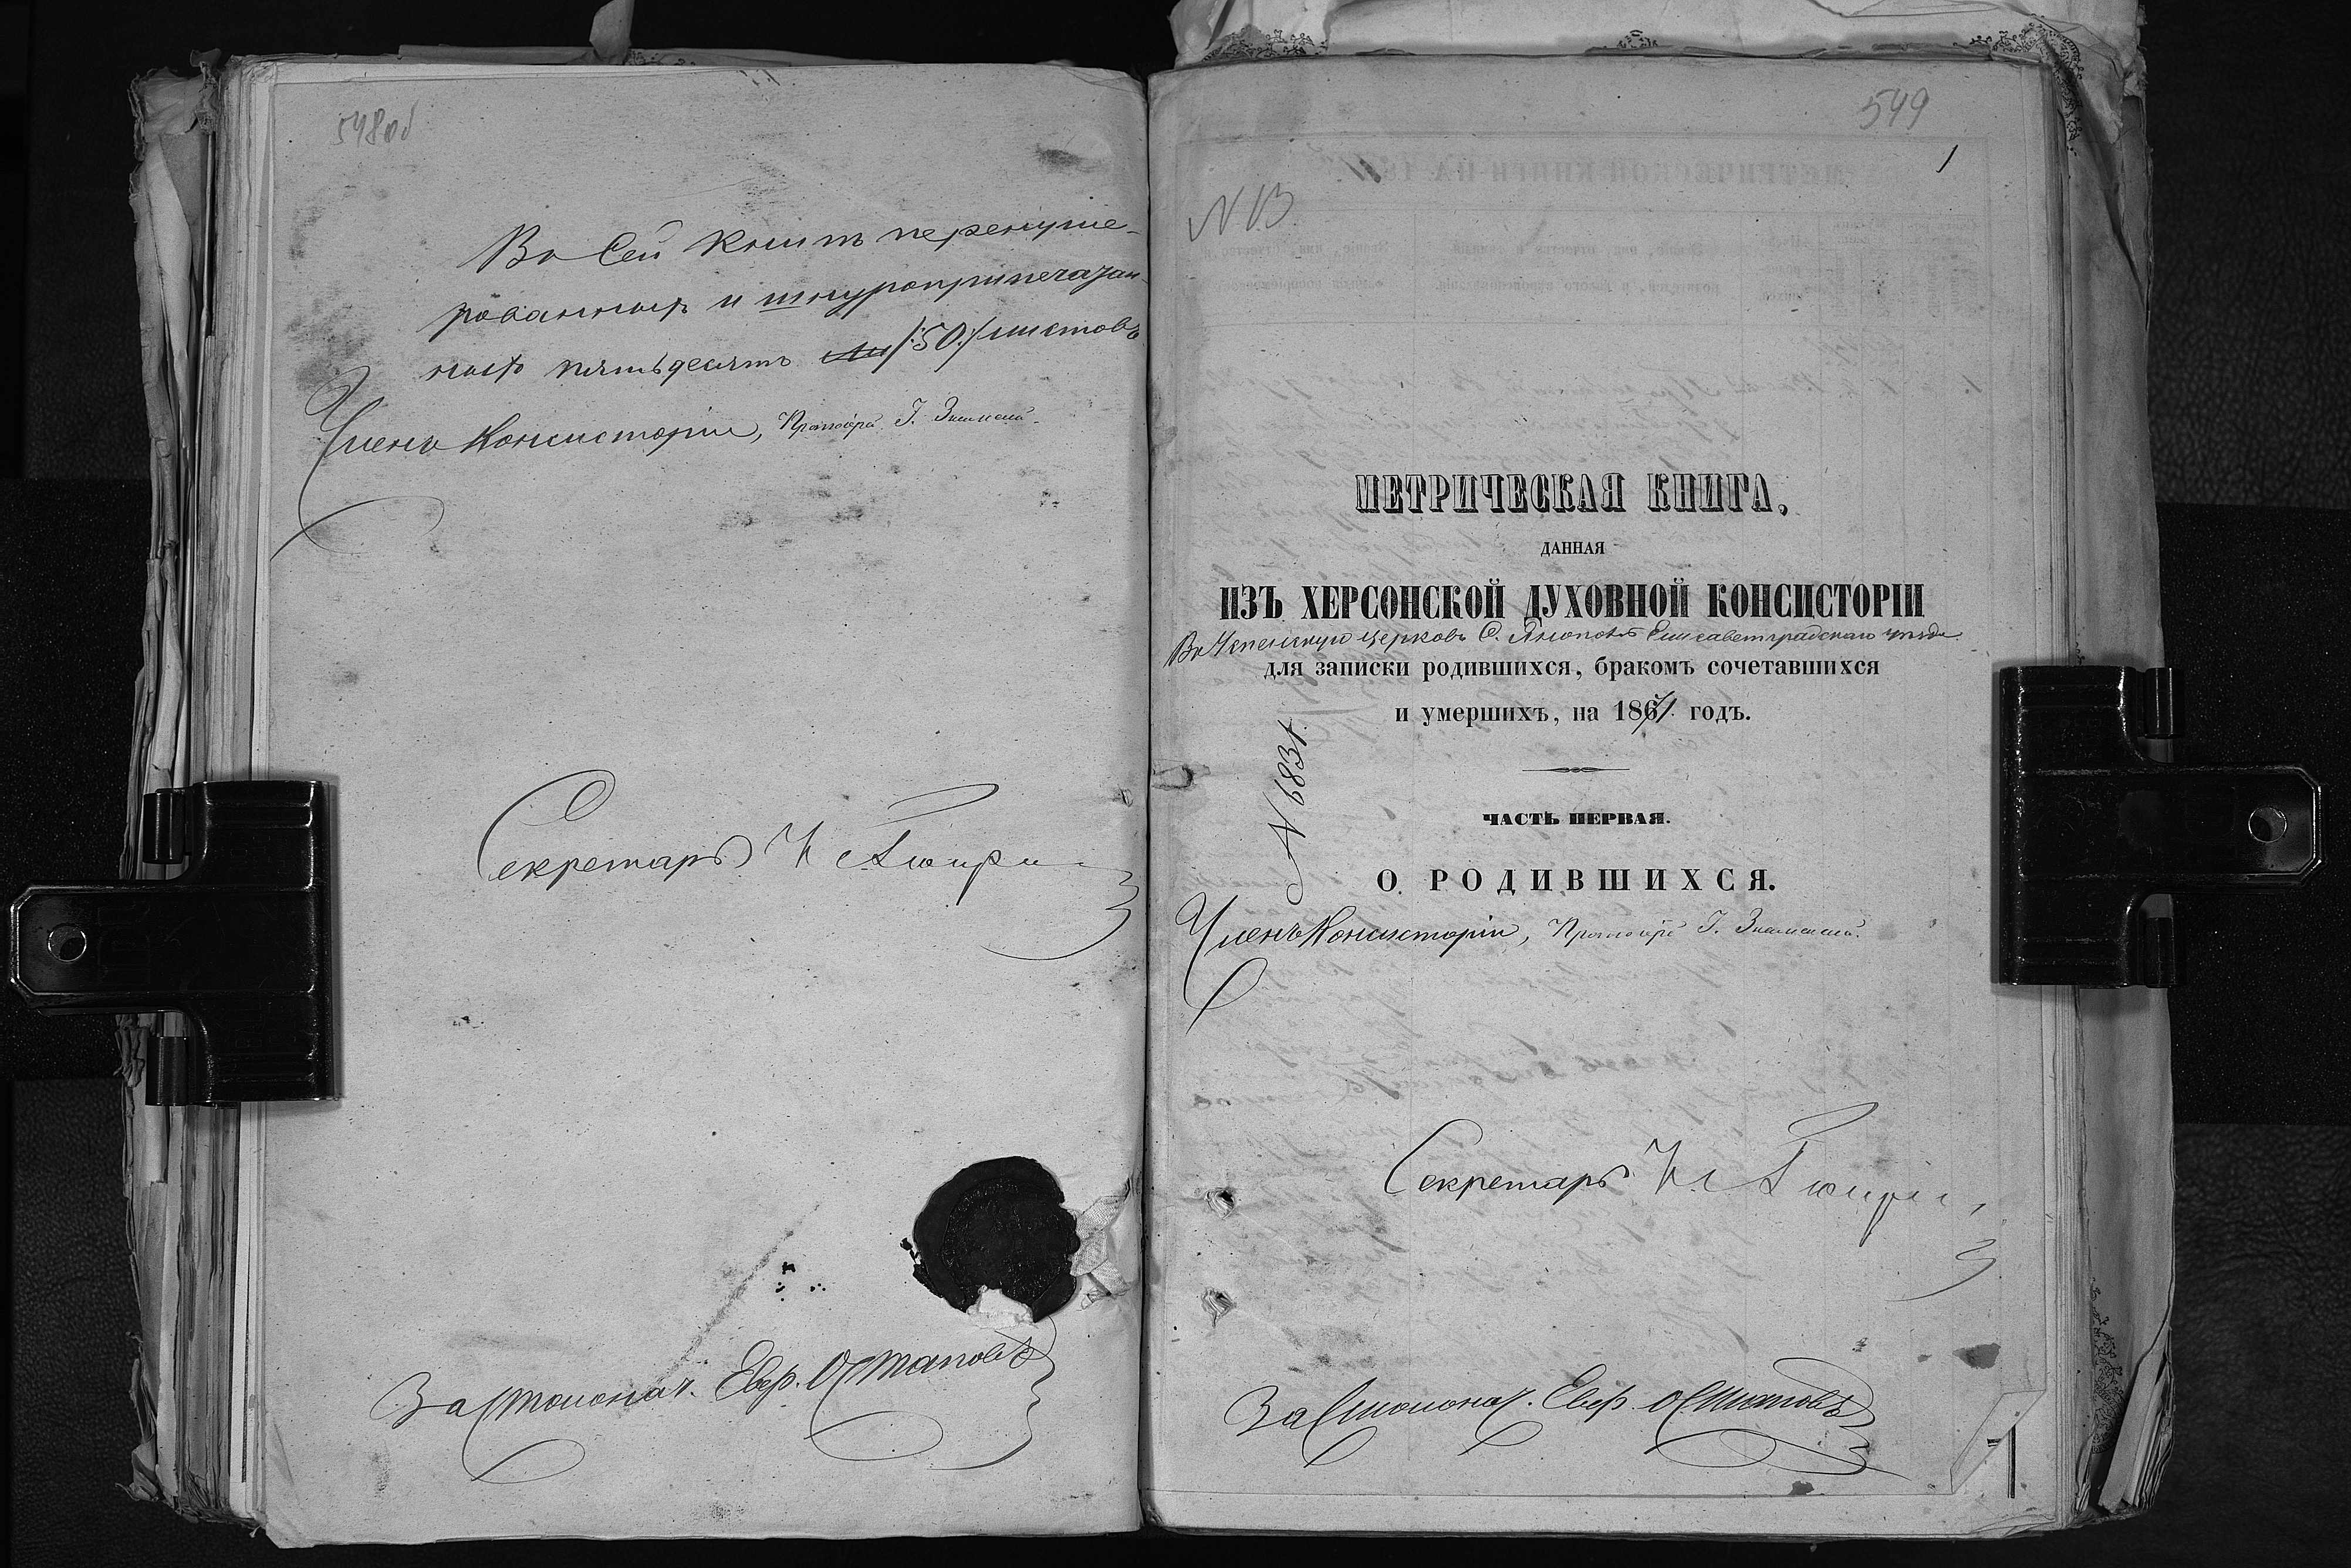 548об
Во Сей книгѣ перенуме-
рованныхъ и шнуроприпечатан-
ныхъ пятьдесятъ /:50:/ листовъ
Членъ Консисторіи, Протоіерей І. Знаменскій
Секретарь
За Столонач. Евф. Остаповъ
549
1
N 13
МЕТРИЧЕСКАЯ КНИГА,
ДАННАЯ
ИЗЪ ХЕРСОНСКОЙ ДУХОВНОЙ КОНСИСТОРІИ
Въ Успенскую церковь С. Елисаветградскаго уѣзда
для записки родившихся, бракомъ сочетавшихся
и умершихъ, на 1871 годъ.
N 6831.
ЧАСТЬ ПЕРВАЯ.
О РОДИВШИХСЯ.
Членъ Консисторіи, Протоіерей І. Знаменскій
Секретарь
За Столонач. Евф. Остаповъ